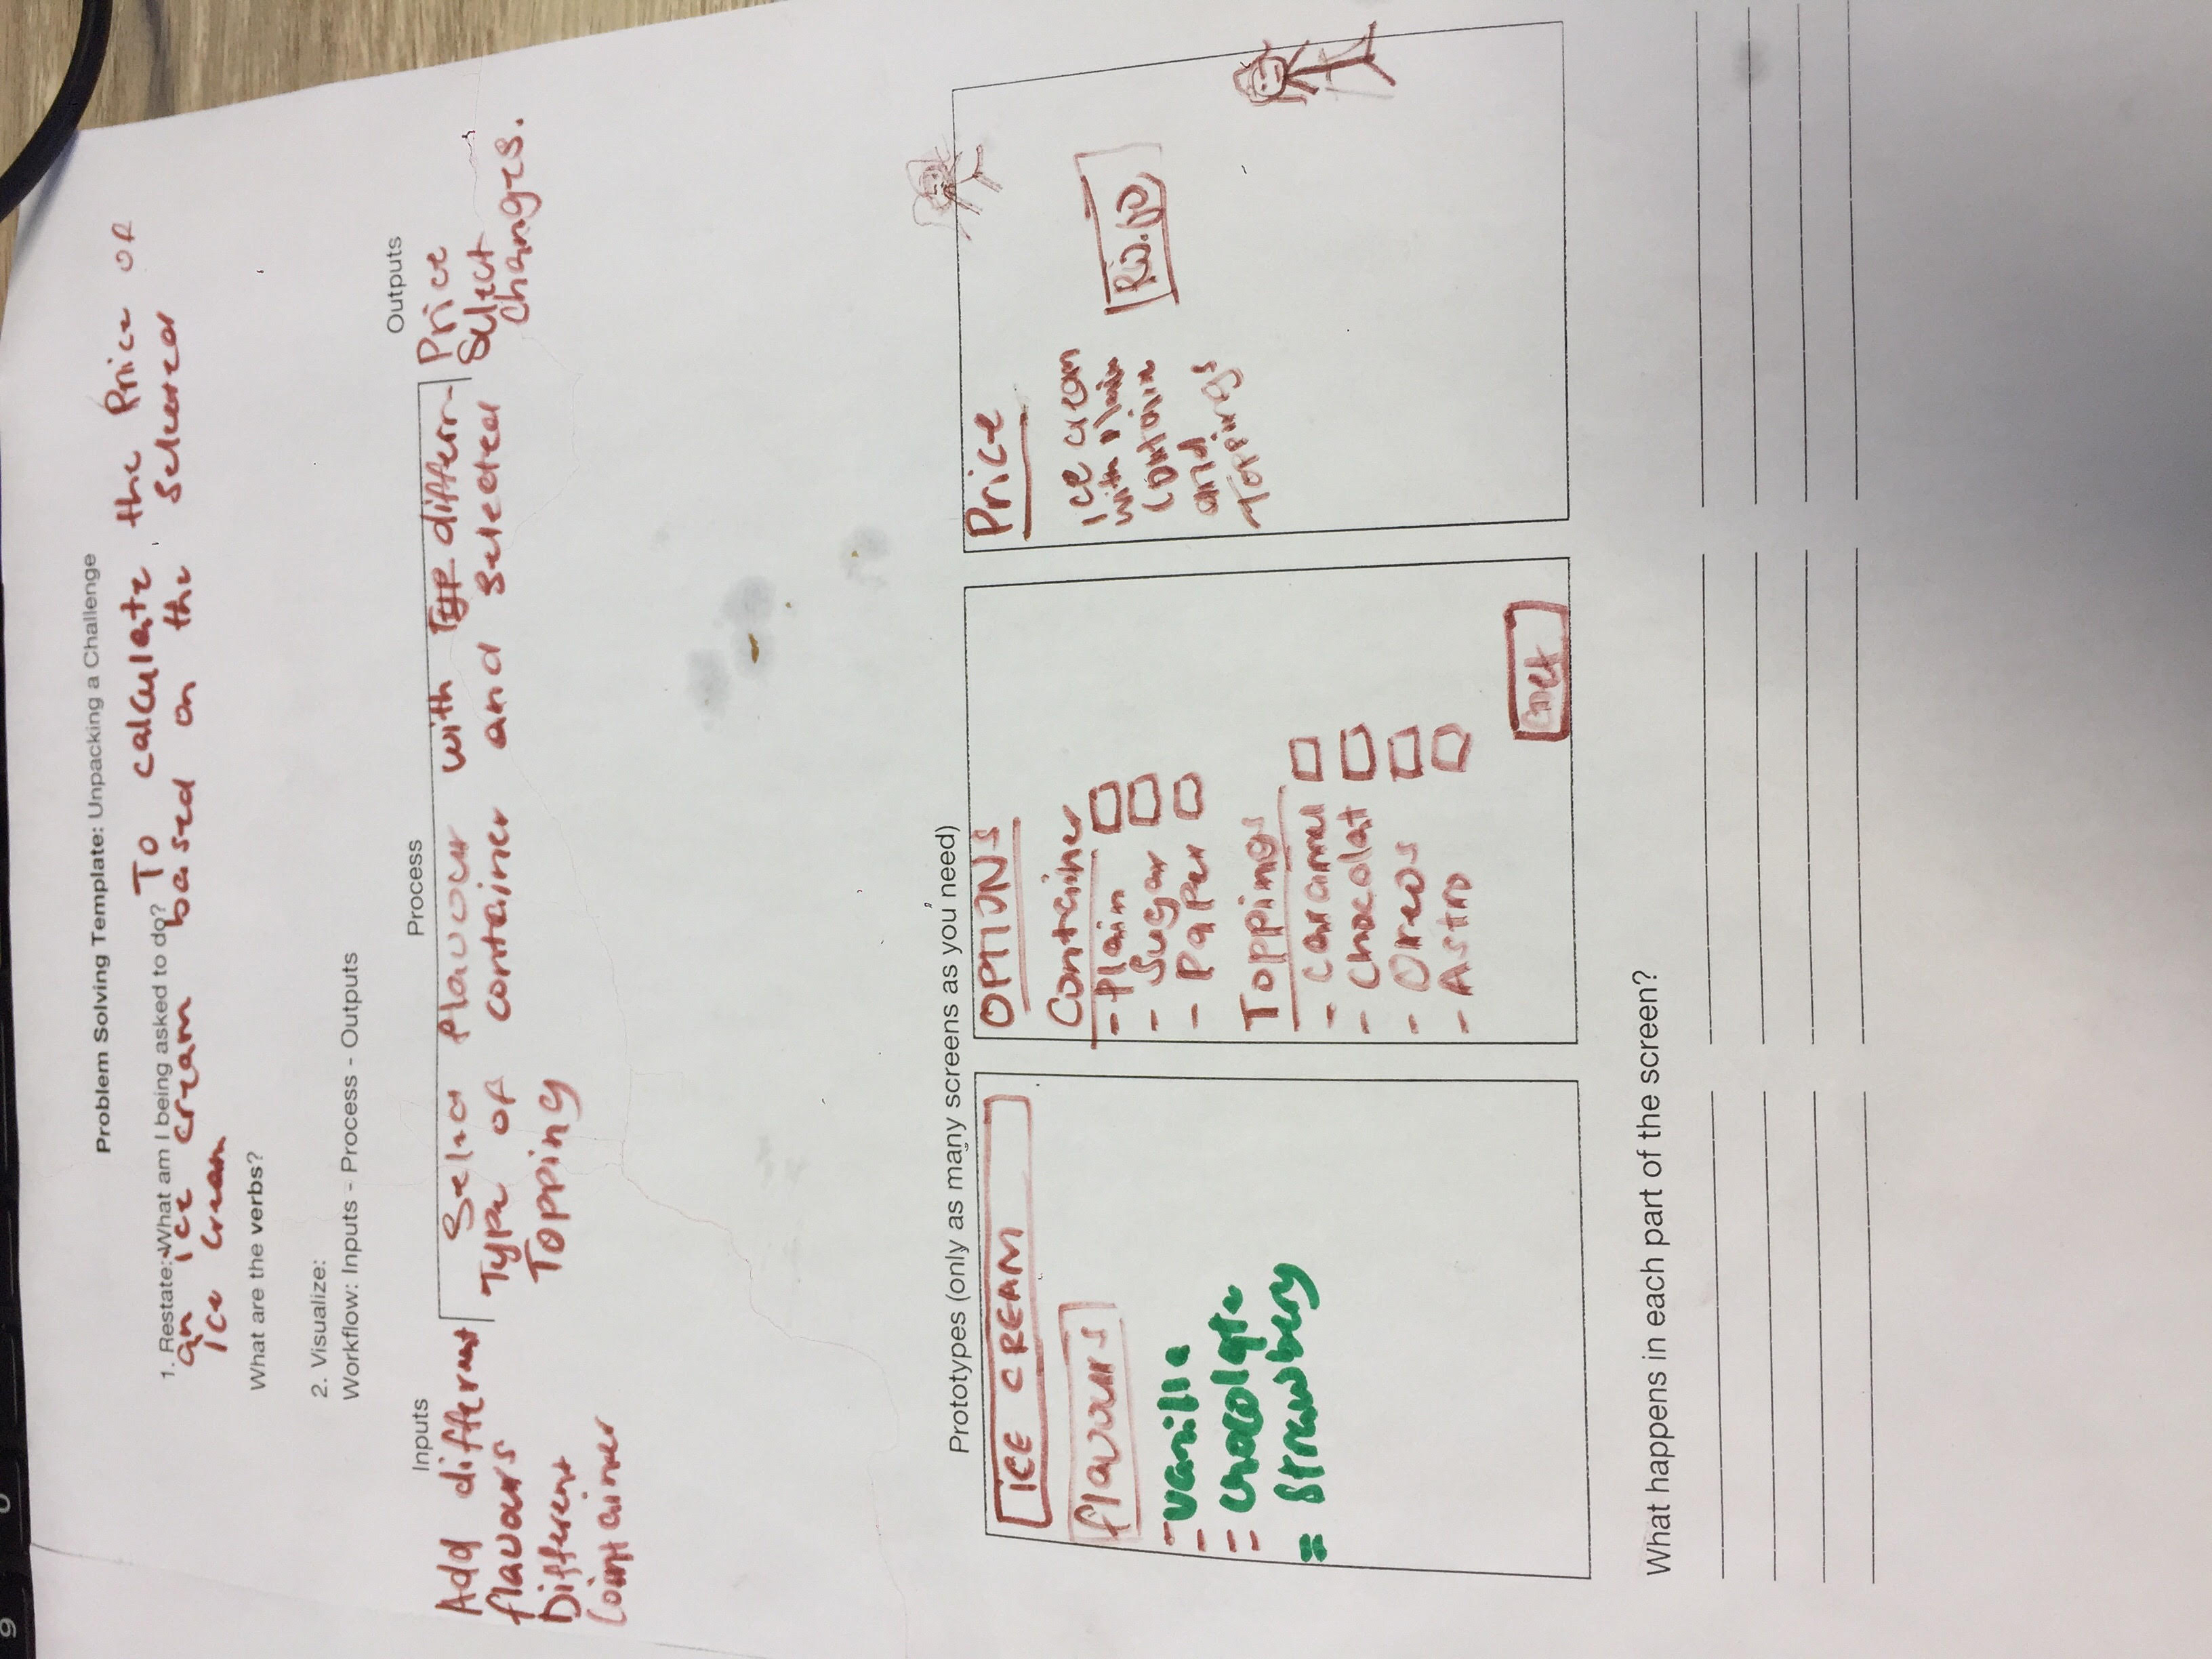 Problem Solving Template: Unpacking a Challenge
1. Restate: What am I being asked to do? To calculate the Price of
an ice cream based on the selected
ice cream
What are the verbs?
2. Visualize:
Workflow: Inputs - Process - Outputs
Inputs
Add different
flavours
Different
container
Process
Select flavour with differn
Type of container and selected
Topping
Outputs
Price
Select
changes.
Prototypes (only as many screens as you need)
ICE CREAM
flavours
- vanilla
- chocolate
= strawbery
OPTIONS
Container
- Plain
- Sugar
- Paper
Toppings
- caramel
- chocolat
- Oreos
- Astro
Price
Ice cream
with Plain
and
Toppings
What happens in each part of the screen?
9